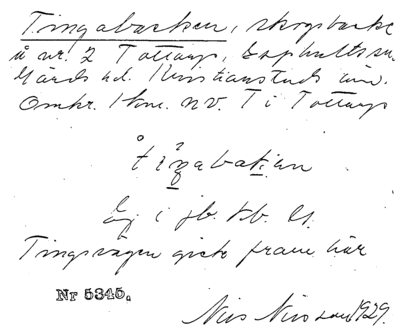 Tingabacken, skogsbacke
å nr. 2 Tottarp,
härads hd. Kristianstads län.
Omkr. 1 km. NV. T i Tottarp
tingabakan
Ej i jb. kb. 
Tingsvägen gick fram här
Nr 5345.
Nils Nilsson 1929.